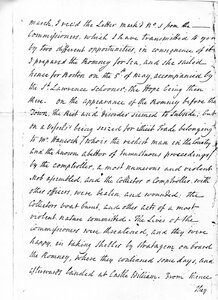 march, I rec'd the Letter mark'd N.º 3 from the
Commissioners, which I have Transmitted to you
by two different opportunities, in consequence of it
I prepared the Romney for Sea, and she sailed
hence for Boston on the 8th of may, accompanied by
the St. Lawrence Schooner, the Hope being then
there. on the appearance of the Romney before the
Town, the Riot and disorder seemed to Subside, but
on a Vessel's being seized for illicit Trade belonging
to Mr Hancock (who is the richest man in the Country
and the known abettor of tumultuous proceedings)
by the comptroller, a most numerous and violent
mob assembled, and the Collector & Comptroller with
other officers, were beaten and wounded, the
Collector's boat burnt, and other acts of a most
violent nature committed. The Lives of the
Commissioners were threatened, and they were
happy, in taking shelter by Stratagem on board
the Romney, where they continued some days, and
afterwards landed at Castle William. From hence
They